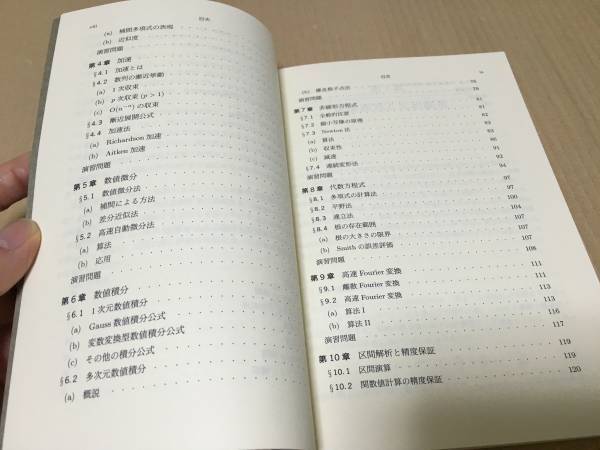 viii 目次
(a) 補間多項式の表現
(b) 近似度
演習問題
第4章 加速
§4.1 加速とは
§4.2 数列の漸近挙動
(a) 1次収束
(b) p次収束 (p > 1)
(c) O(n⁻ᵅ) の収束
§4.3 漸近展開公式
§4.4 加速法
(a) Richardson 加速
(b) Aitken 加速
演習問題
第5章 数値微分
§5.1 数値微分法
(a) 補間による方法
(b) 差分近似法
§5.2 高速自動微分法
(a) 算法
(b) 応用
演習問題
第6章 数値積分
§6.1 1次元数値積分
(a) Gauss 数値積分公式
(b) 変数変換型数値積分公式
(c) その他の積分公式
§6.2 多次元数値積分
(a) 概説
目次 ix
(b) 優良格子点法 76
演習問題 78
第7章 非線形方程式 81
§7.1 全般的注意 81
§7.2 縮小写像の原理 82
§7.3 Newton 法
(a) 算法
(b) 収束性
(c) 減速
§7.4 連続変形法
演習問題 94
第8章 代数方程式 97
§8.1 多項式の計算法 97
§8.2 平野法 100
§8.3 連立法 104
§8.4 根の存在範囲 107
(a) 根の大きさの限界 107
(b) Smith の誤差評価 107
演習問題 108
第9章 高速 Fourier 変換 111
§9.1 離散 Fourier 変換 111
§9.2 高速 Fourier 変換 112
(a) 算法 I
(b) 算法 II
演習問題 117
第10章 区間解析と精度保証 119
§10.1 区間演算 119
§10.2 関数値計算の精度保証 120